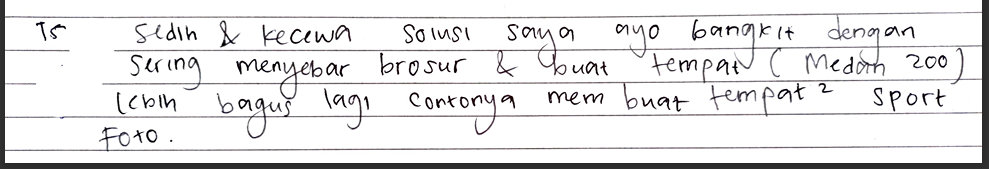 Ts sedih & kecewa solusi saya ayo bangkit dengan
sering menyebar brosur & buat tempat ( Medan zoo)
lebih bagus lagi contonya mem buat tempat² sport
Foto .